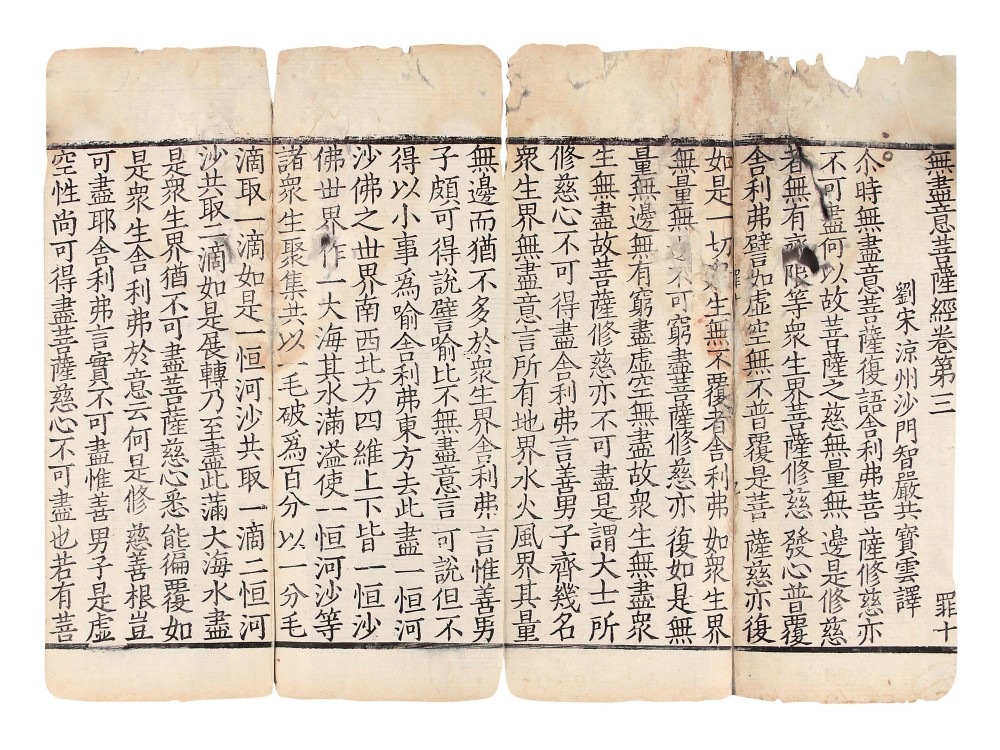 無盡意菩薩經卷第三 罪十
劉宋涼州沙門智嚴共寶雲譯
尒時無盡意菩薩復語舍利弗菩薩修慈亦
不可盡何以故菩薩之慈無量無邊是修慈
者無有齊限等衆生界菩薩修慈發心普覆
舍利弗譬如虛空無不普覆是菩薩慈亦復
如是一切衆生無不覆者舍利弗如衆生界
無量無 不可窮盡菩薩修慈亦復如是無
量無邊無有窮盡虛空無盡故衆生無盡衆
生無盡故菩薩修慈亦不可盡是謂大士所
修慈心不可得盡舍利弗言善男子齊幾名
衆生界無盡意言所有地界水火風界其量
無邊而猶不多於衆生界舍利弗言惟善男
子頗可得說譬喻比不無盡意言可說但不
得以小事爲喻舍利弗東方去此盡一恒河
沙佛之世界南西北方四維上下皆一恒沙
佛世界作一大海其水滿溢使一恒河沙等
諸衆生聚集共以一毛破爲百分以一分毛
滴取一滴如是一恒河沙共取一滴二恒河
沙共取二滴如是展轉乃至盡此滿大海水盡
是衆生界猶不可盡菩薩慈心悉能徧覆如
是衆生舍利弗於意云何是修慈善根豈
可盡耶舍利弗言實不可盡惟善男子是虛
空性尚可得盡菩薩慈心不可盡也若有菩